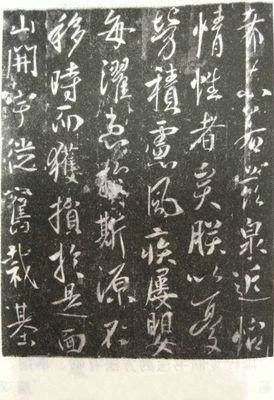 茲泉近怡
情性者矣朕以憂
勞積慮風疾屢嬰
每濯患於斯源不
移時而獲損於是面
山開宇從舊裁基